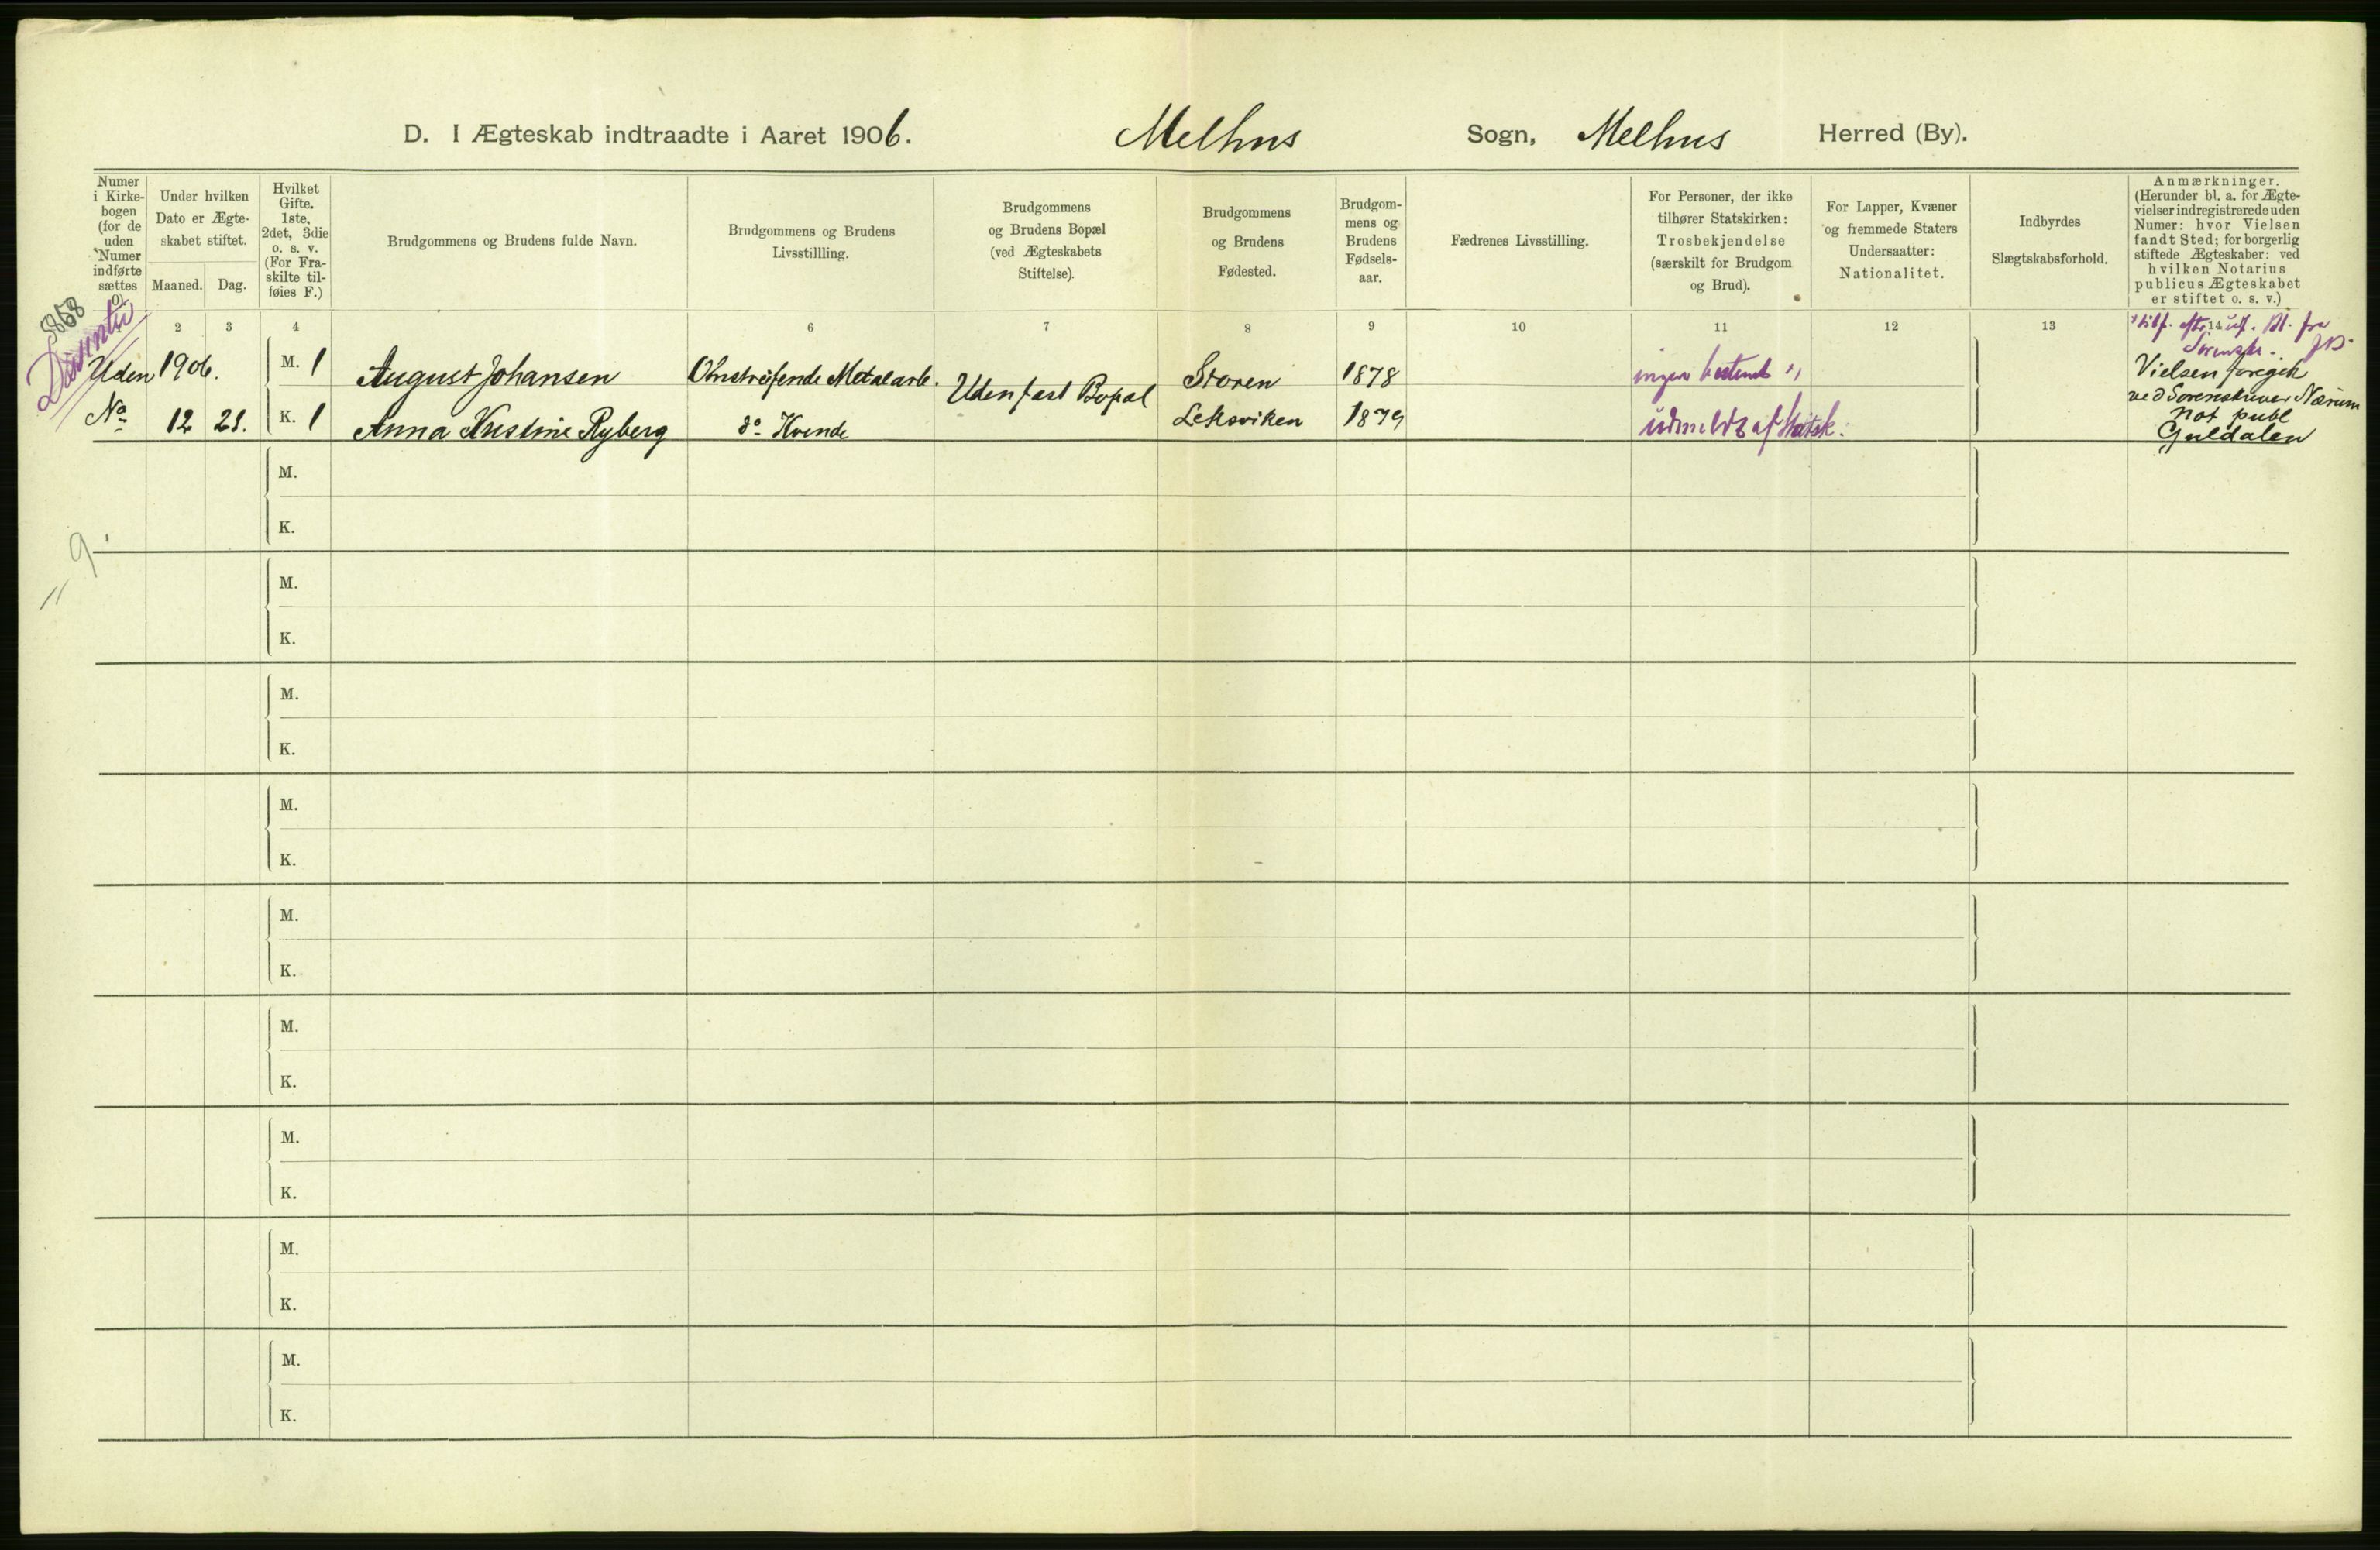 D. I Ægteskab indtraadte i Aaret 1906. Melhus Sogn, Melhus Herred (By).
Numer
i Kirke-
bogen
(for de
uden
Numer
indførte
sættes
0).
Under hvilken
Dato er Ægte-
skabet stiftet.
Maaned. Dag.
Hvilket
Gifte.
1ste,
2det, 3die
o. s. v.
(For Fra-
skilte til-
føies F.)
Brudgommens og Brudens fulde Navn.
Brudgommens og Brudens
Livsstillling.
Brudgommens
og Brudens Bopæl
(ved Ægteskabets
Stiftelse).
Brudgommens
og Brudens
Fødested.
Brudgom-
mens og
Brudens
Fødsels-
aar.
Fædrenes Livsstilling.
For Personer, der ikke
tilhører Statskirken:
Trosbekjendelse
(særskilt for Brudgom
og Brud).
For Lapper, Kvæner
og fremmede Staters
Undersaatter:
Nationalitet.
Indbyrdes
Slægtskabsforhold.
Anmærkninger.
(Herunder bl. a. for Ægte-
vielser indregistrerede uden
Numer: hvor Vielsen
fandt Sted; for borgerlig
stiftede Ægteskaber: ved
hvilken Notarius
publicus Ægteskabet
er stiftet o. s. v.)
2 3 4 6 7 8 9 10 11 12 13 14
5868
Uden 1906. M. 1 August Johansen Omstreifende Metalarb. Uden fast Bopæl Støren 1878 ingen bestemt
No 12 21. K. 1 Anna Kristine Ryberg do Kvinde Leksviken 1879 udmeldt af Statsk.
Sorenskr.
Vielsen foregik
ved Sorenskriver Nærum
Not publ
Guldalen
M.
K.
9
M.
K.
M.
K.
M.
K.
M.
K.
M.
K.
M.
K.
M.
K.
M.
K.